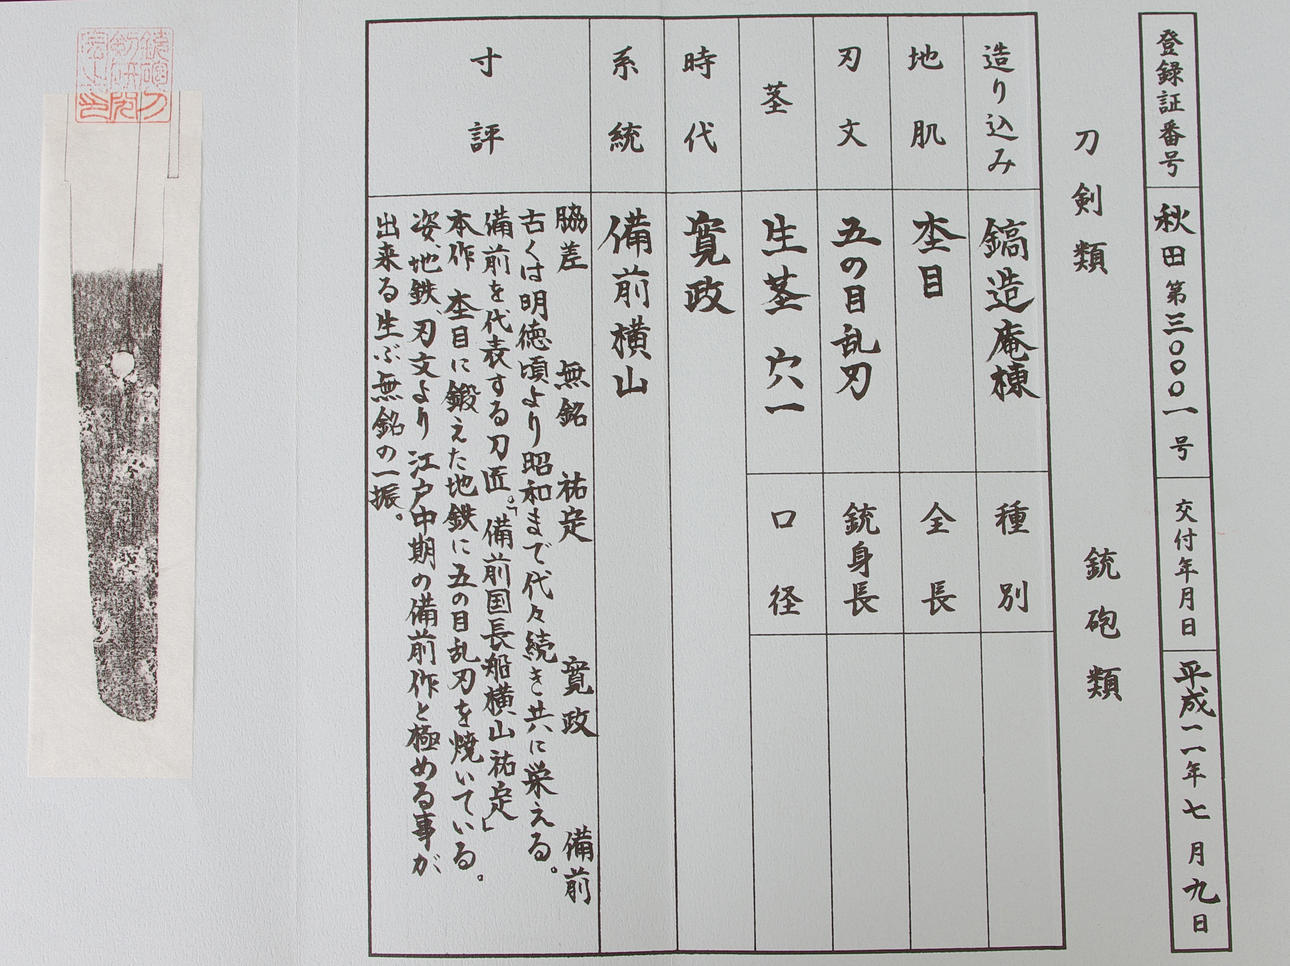 登録証番号 秋田第三〇〇〇一号 交付年月日 平成一一年七月九日
刀剣類 銃砲類
造り込み 鎬造庵棟 種別
地肌 杢目 全長
刃文 五の目乱刃 銃身長
茎 生茎 穴一 口径
時代 寛政
系統 備前横山
寸評
脇差 無銘 祐定 寛政 備前
古くは明徳頃より昭和まで代々続き共に栄える。
備前を代表する刀匠。「備前国長船横山祐定」
本作 杢目に鍛えた地鉄に五の目乱刃を焼いている。
姿、地鉄、刃文より江戸中期の備前作と極める事が
出来る生ぶ無銘の一振。